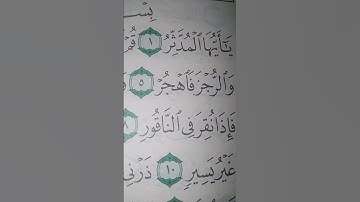 بِسْ
يَٰٓأَيُّهَا ٱلْمُدَّثِّرُ ١ قُمْ
وَٱلرُّجْزَ فَٱهْجُرْ ٥
فَإِذَا نُقِرَ فِى ٱلنَّاقُورِ ٨
غَيْرُ يَسِيرٍ ١٠ ذَرْنِى